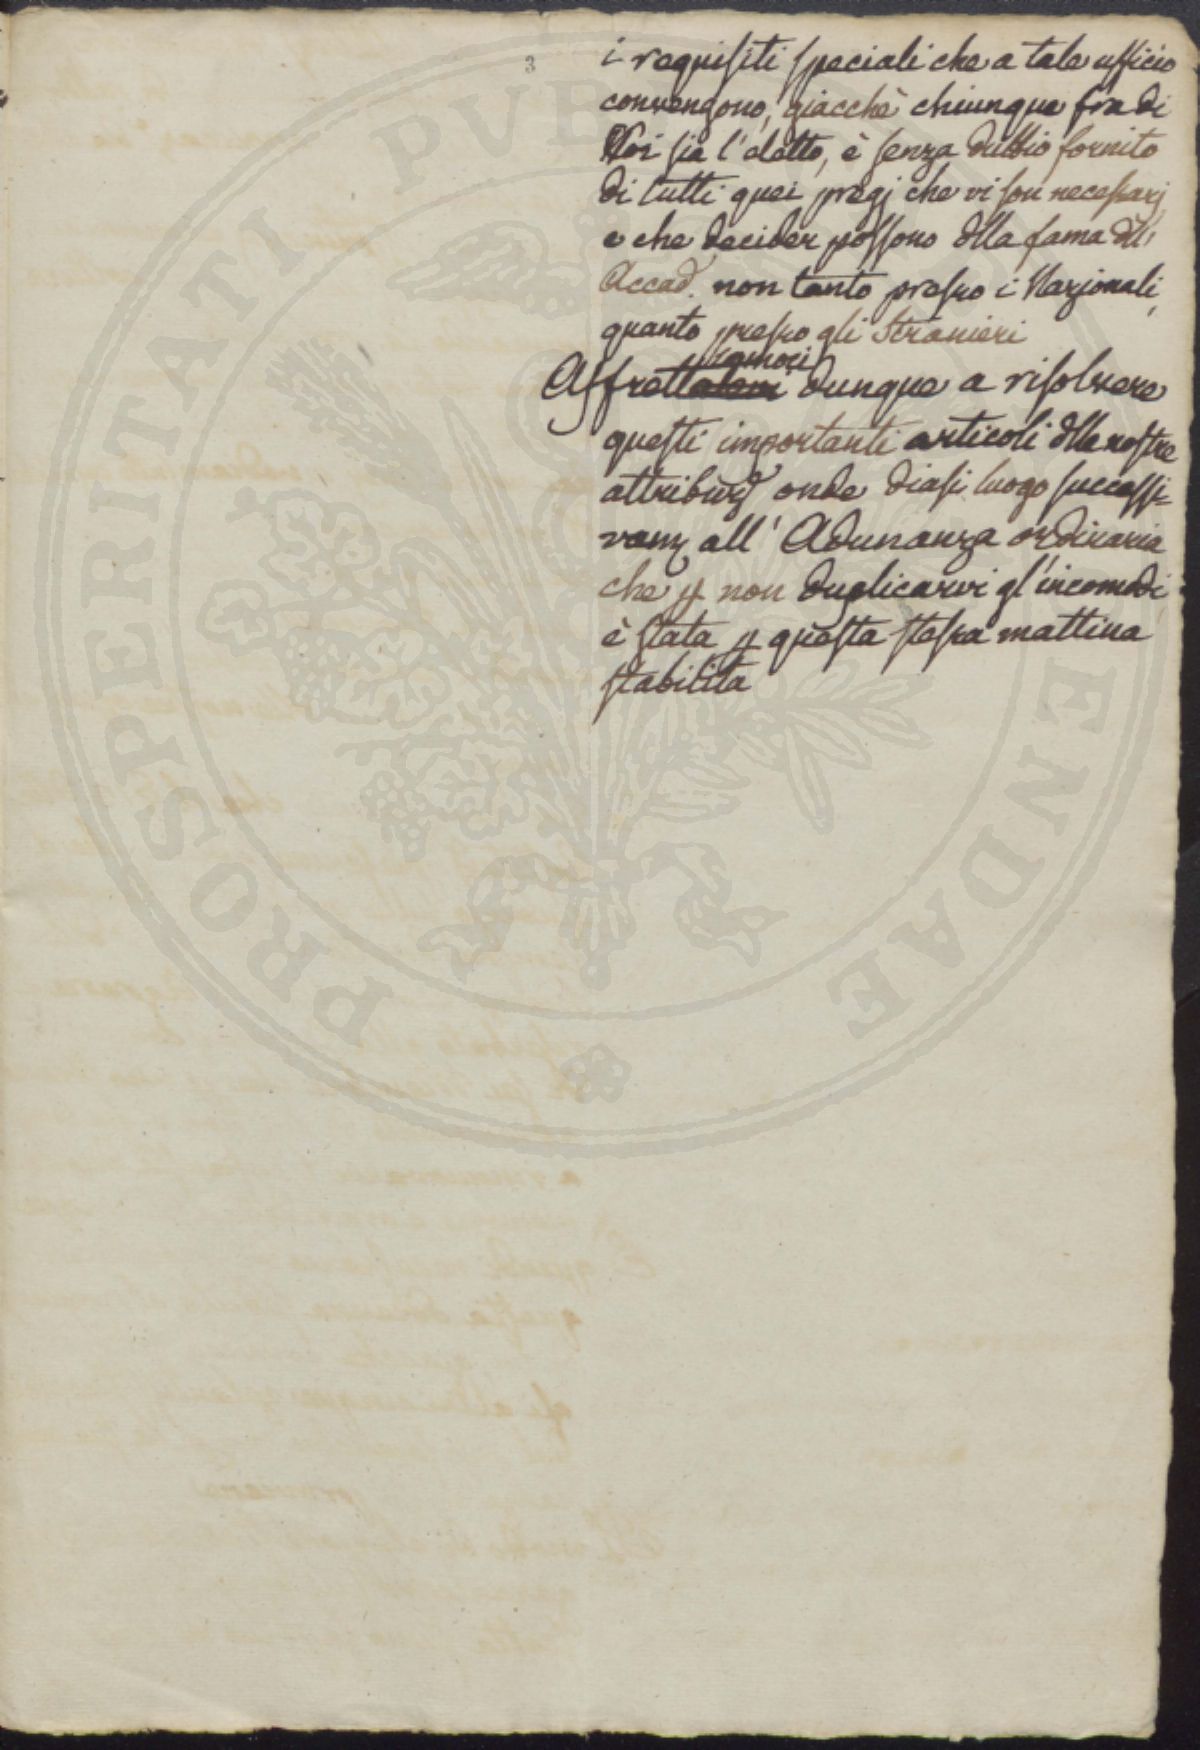 3
i requisiti speciali che a tale ufficio
convengono, giacchè chiunque fra di
Noi sia l'eletto, è senza dubbio fornito
di tutti quei pregj che vi son necessarj
e che decider possono dlla fama dll'
Accad. non tanto presso i Nazionali,
quanto presso gli Stranieri
Affrettiamoci dunque a risolvere
questi importanti articoli dlle nostre
attribuz. onde diasi luogo successi=
vam. all' Adunanza ordinaria
che p non duplicarvi gl'incomodi
è stata p questa stessa mattina
stabilita
PROSPERITATI PUB ENDAE